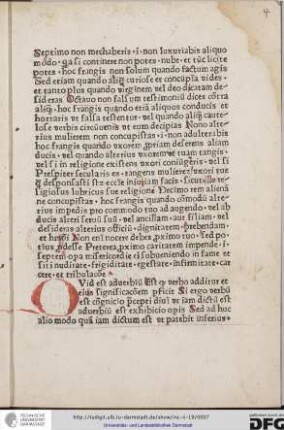 Septimo non mechaberis ·i· non luxuriabis aliquo
modo · q̃a si continere non potes · nube · et tũc licite
potes · hoc frangis non solum quando factum agis
Sed etiam quando aliq̃ curiose et concupia vides ·
et tanto plus quando virginem vel deo dicatam de-
sideras Octauo non falsum testimoniũ dices cõtra
aliq̃ · hoc frangis quando etiã aliquos conducis et
hortaris vt falsa testentur · vel quando aliq̃ caute-
lose verbis circũuenis vt eum decipias Nono alte-
rius mulierem non concupiscas ·i· non adulterabis
hoc frangis quando vxorem ꝓpriam deserens aliam
ducis · vel quando alterius vxorem vt tuam tangis ·
vel si in religione existens vxori coniũgeris · vel si
Prespiter secularis es · tangens mulierẽ vxori tue
desponsasti sue ecclẽ iniuriam facis · sicut
ligiosus lubricus sue religione Decimo rem alienã
ne concupiscas · hoc frangis quando cõmodũ alte-
rius impedis pro commodo tuo ad augendo · vel ab-
ducis alteri seruũ suũ · vel ancillam · aut filiam · vel
desideras alterius officiũ · dignitatem · prebendam ·
et Non em̃ nocere debes ꝓximo tuo · Sed po-
tius ꝓdesse Preterea ꝓximo caritatem impende ·i·
septem opa misericordie ei subueniendo in fame et
siti nuditate · frigiditate · egestate · infirmitate · car-
cere · et tribulacõe
Quid est aduerbiũ Est q̃ verbo additur et
eius significacõem ꝑficit Si ergo verbũ
est cõgnicio p̃cepti diui vt iam dictũ est
aduerbiũ est exhibicio opis Sed ad huc
alio modo quã iam dictum est vt patebit inferius ·
4
http://tudigit.ulb.tu-darmstadt.de/show/inc-ii-19/0007
Universitäts- und Landesbibliothek Darmstadt
TECHNISCHE UNIVERSITÄT DARMSTADT
DFG